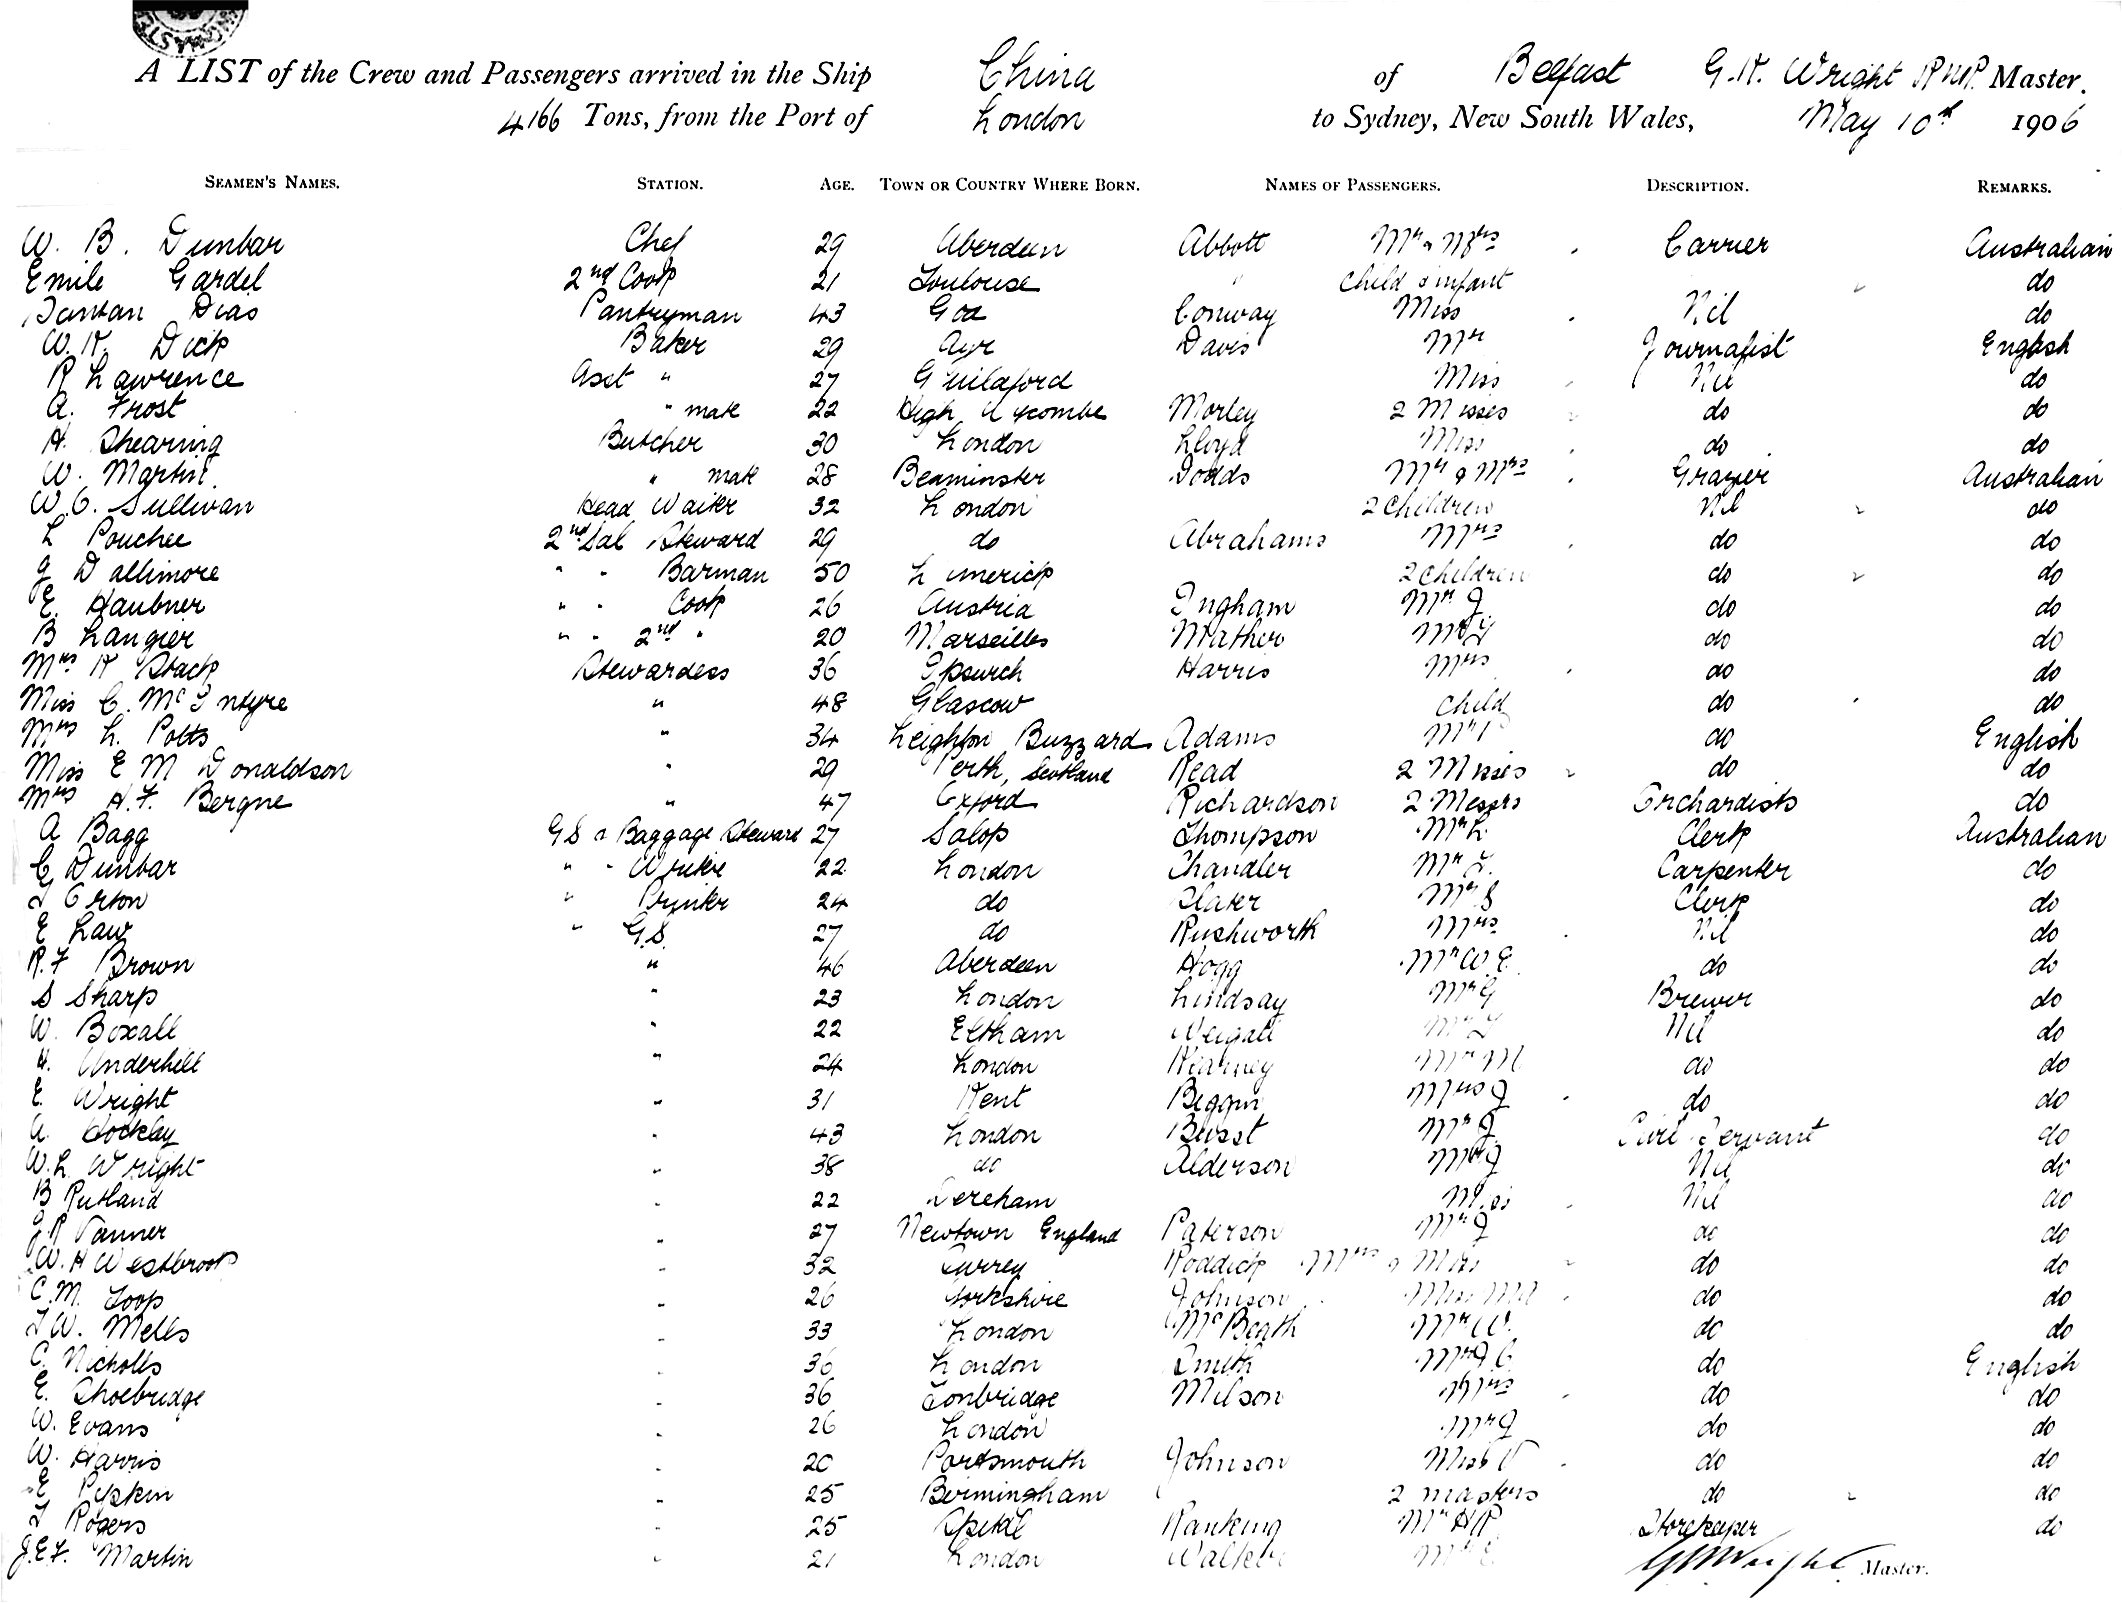 A LIST of the Crew and Passengers arrived in the Ship China of Belfast G.K. Wright RNR. Master.
4166 Tons, from the Port of London to Sydney, New South Wales, May 10th 1906
SEAMEN'S NAMES. STATION. AGE. TOWN OR COUNTRY WHERE BORN. NAMES OF PASSENGERS. DESCRIPTION. REMARKS.
W. B. Dunbar Chef 29 Aberdeen Abbott Mr & Mrs Carrier Australian
Emile Gardel 2nd Cook 21 Toulouse " Child & infant do
Dias Pantryman 43 Goa Conway Miss Nil do
W.K. Dick Baker 29 Ayr Davis Mr Journalist English
R Lawrence Asst " 27 Guildford Miss Nil do
A. Frost " mate 22 High Wycombe Morley 2 Misses do do
H. Shearing Butcher 30 London Lloyd Miss do do
W. Martin " mate 28 Beaminster Dodds Mr & Mrs Grazier Australian
W.C. Sullivan Head Waiter 32 London 2 Children Nil do
L Pouchee 2nd Sal Steward 29 do Abrahams Mrs do do
J Dallimore " " Barman 50 Limerick 2 Children do do
E. Haubner " " Cook 26 Austria Ingham Mr J do do
B Langier " " 2nd " 20 Marseilles Mather do do
Mrs K Stack Stewardess 36 Ipswich Harris Mrs do do
Miss C. McIntyre " 48 Glascow Child do do
Mrs L. Potts " 34 Leighton Buzzard Adams Mr do English
Miss E M Donaldson " 29 Perth, Scotland Read 2 Misses do do
Mrs H.F. Bergne " 47 Oxford Richardson 2 Messrs Orchardists do
A Bagg GS & Baggage Steward 27 Salop Thompson Mr L. Clerk Australian
C Dunbar " " Writer 22 London Chandler Mr Carpenter do
Orton " Printer 24 do Slater Mr S Clerk do
E Law " G.S. 27 do Rushworth Mrs Nil do
R.F Brown " 46 Aberdeen Hogg Mr W.E. do do
S Sharp " 23 London Lindsay Mr G Brewer do
W. Boxall " 22 Eltham Weigall Mr Nil do
H. Underhill " 24 London Kearney Mr M. do do
E. Wright " 31 Kent Beggin Mrs J do do
A. Hockley " 43 London Beisst Mr J Civil Servant do
W.L Wright " 38 do Alderson Nil do
B Rutland " 22 Dereham Miss Nil do
J.R Tanner " 27 Newtown England Paterson Mr J do do
W.H Westbrook " 32 Surrey Roddick Mrs & Miss do do
C.M. Loop " 26 Yorkshire Johnson Miss do do
W. Mells " 33 London McBeath Mr W. do do
C. Nicholls " 36 London Smith Mr J.C. do English
E. Shoebridge " 36 Tonbridge Milson Mrs do do
W. Evans " 26 London Mr J do do
W. Harris " 20 Portsmouth Johnson Miss V do do
E Pipkin " 25 Birmingham 2 masters do do
Rogers " 25 Ranking Mr H.R Storekeeper do
J.E.F. Martin " 21 London Walker Mr E.
GKWright Master.